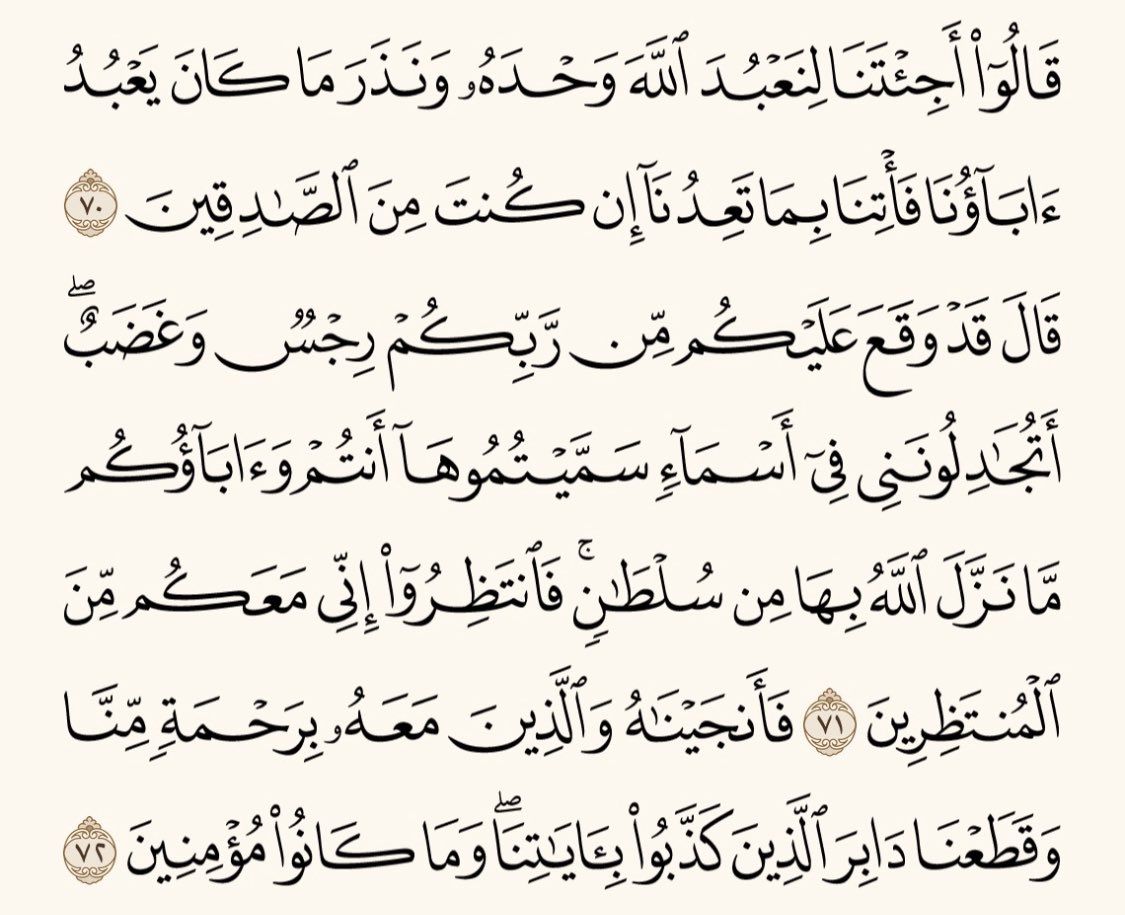 قَالُوٓا۟ أَجِئْتَنَا لِنَعْبُدَ ٱللَّهَ وَحْدَهُۥ وَنَذَرَ مَا كَانَ يَعْبُدُ
ءَابَآؤُنَا فَأْتِنَا بِمَا تَعِدُنَآ إِن كُنتَ مِنَ ٱلصَّٰدِقِينَ ٧٠
قَالَ قَدْ وَقَعَ عَلَيْكُم مِّن رَّبِّكُمْ رِجْسٌ وَغَضَبٌ ۖ
أَتُجَٰدِلُونَنِى فِىٓ أَسْمَآءٍ سَمَّيْتُمُوهَآ أَنتُمْ وَءَابَآؤُكُم
مَّا نَزَّلَ ٱللَّهُ بِهَا مِن سُلْطَٰنٍ ۚ فَٱنتَظِرُوٓا۟ إِنِّى مَعَكُم مِّنَ
ٱلْمُنتَظِرِينَ ٧١ فَأَنجَيْنَٰهُ وَٱلَّذِينَ مَعَهُۥ بِرَحْمَةٍ مِّنَّا
وَقَطَعْنَا دَابِرَ ٱلَّذِينَ كَذَّبُوا۟ بِـَٔايَٰتِنَا ۖ وَمَا كَانُوا۟ مُؤْمِنِينَ ٧٢